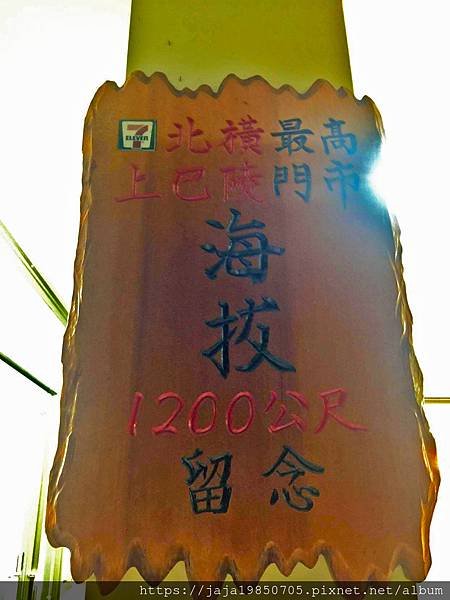 7 ELEVEN 北橫最高
上巴陵門市
海
拔
1200公尺
留念
https://jaja19850705.pixnet.net/album